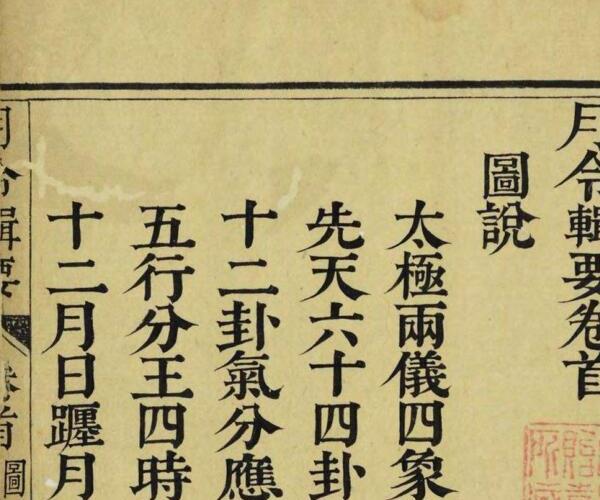 月令輯要卷首
圖說
太極兩儀四象
先天六十四卦
十二卦氣分應
五行分王四時
十二月日躔月
月令輯要 卷首 圖